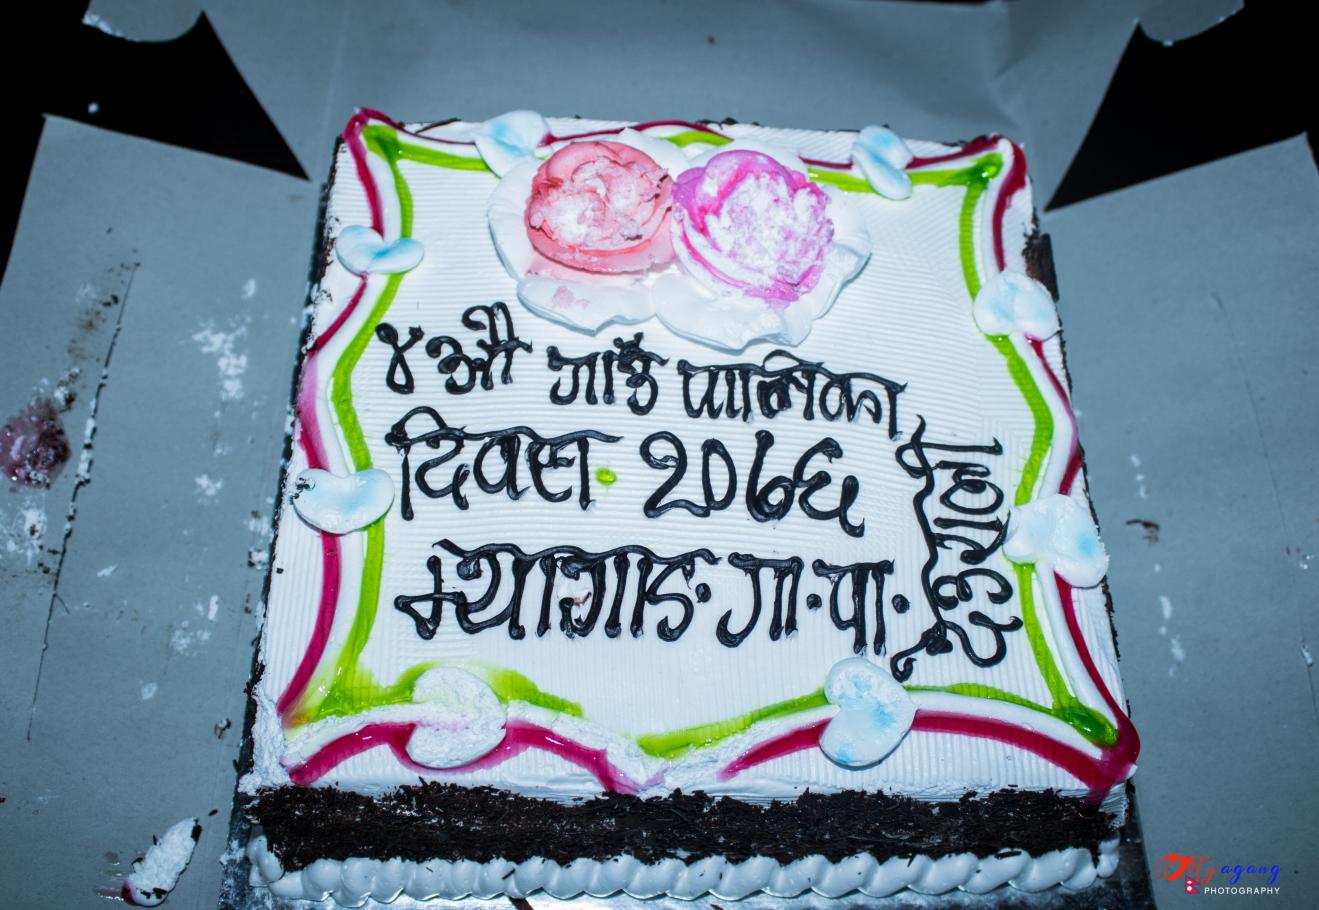 ४औं गाउँ पालिका
दिवस २०७६
म्यागाङ.गा.पा.
Myagang
PHOTOGRAPHY